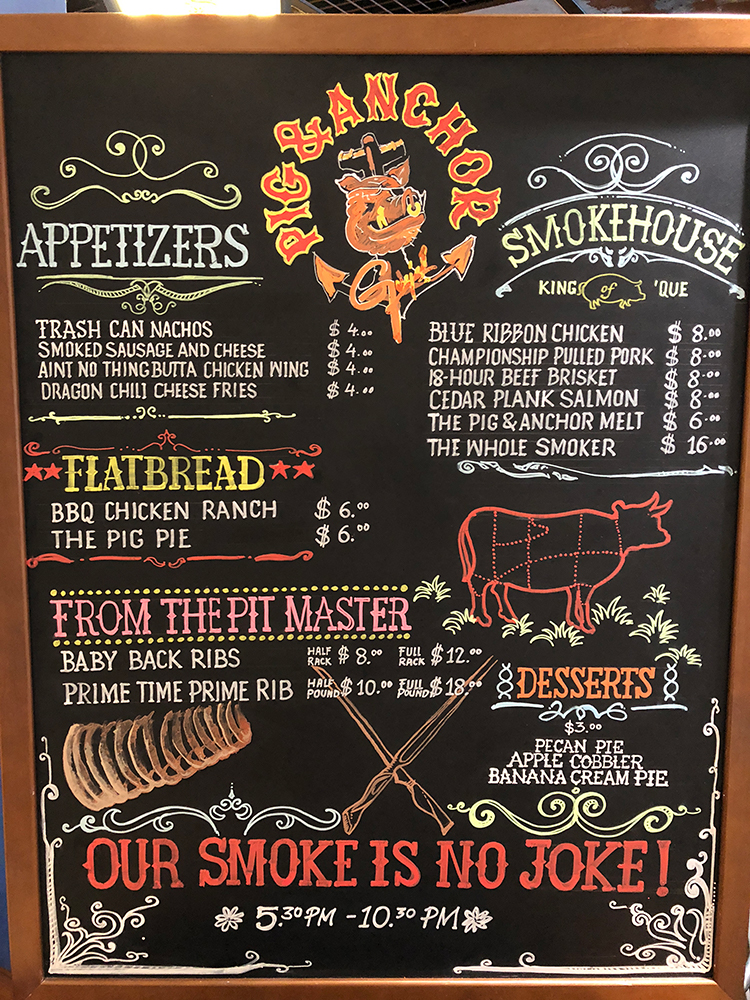 PIG & ANCHOR
APPETIZERS
TRASH CAN NACHOS $ 4.00
SMOKED SAUSAGE AND CHEESE $ 4.00
AINT NO THING BUTTA CHICKEN WING $ 4.00
DRAGON CHILI CHEESE FRIES $ 4.00
SMOKEHOUSE
KING of 'QUE
BLUE RIBBON CHICKEN $ 8.00
CHAMPIONSHIP PULLED PORK $ 8.00
18-HOUR BEEF BRISKET $ 8.00
CEDAR PLANK SALMON $ 8.00
THE PIG & ANCHOR MELT $ 6.00
THE WHOLE SMOKER $ 16.00
FLATBREAD
BBQ CHICKEN RANCH $ 6.00
THE PIG PIE $ 6.00
FROM THE PIT MASTER
BABY BACK RIBS HALF RACK $ 8.00 FULL RACK $ 12.00
PRIME TIME PRIME RIB HALF POUND $ 10.00 FULL POUND $ 18.00
DESSERTS
$3.00
PECAN PIE
APPLE COBBLER
BANANA CREAM PIE
OUR SMOKE IS NO JOKE!
5.30 PM - 10.30 PM